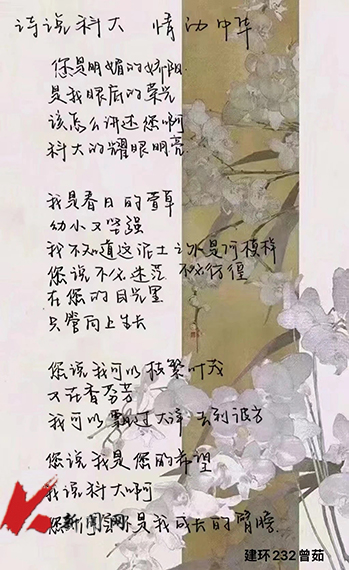 诗说科大 情动中华
您是明媚的娇阳
是我眼底的荣光
该怎么讲述您啊
科大的耀眼明亮
我是春日的萱草
幼小又坚强
我不知道这泥土之外是何模样
您说不必迷茫 不必彷徨
在您的目光里
只管向上生长
您说我可以枝繁叶茂
又花香芬芳
我可以飘过大洋 去到彼方
您说我是您的希望
我说科大啊
您 是我成长的臂膀
新闻网
建环232曾茹